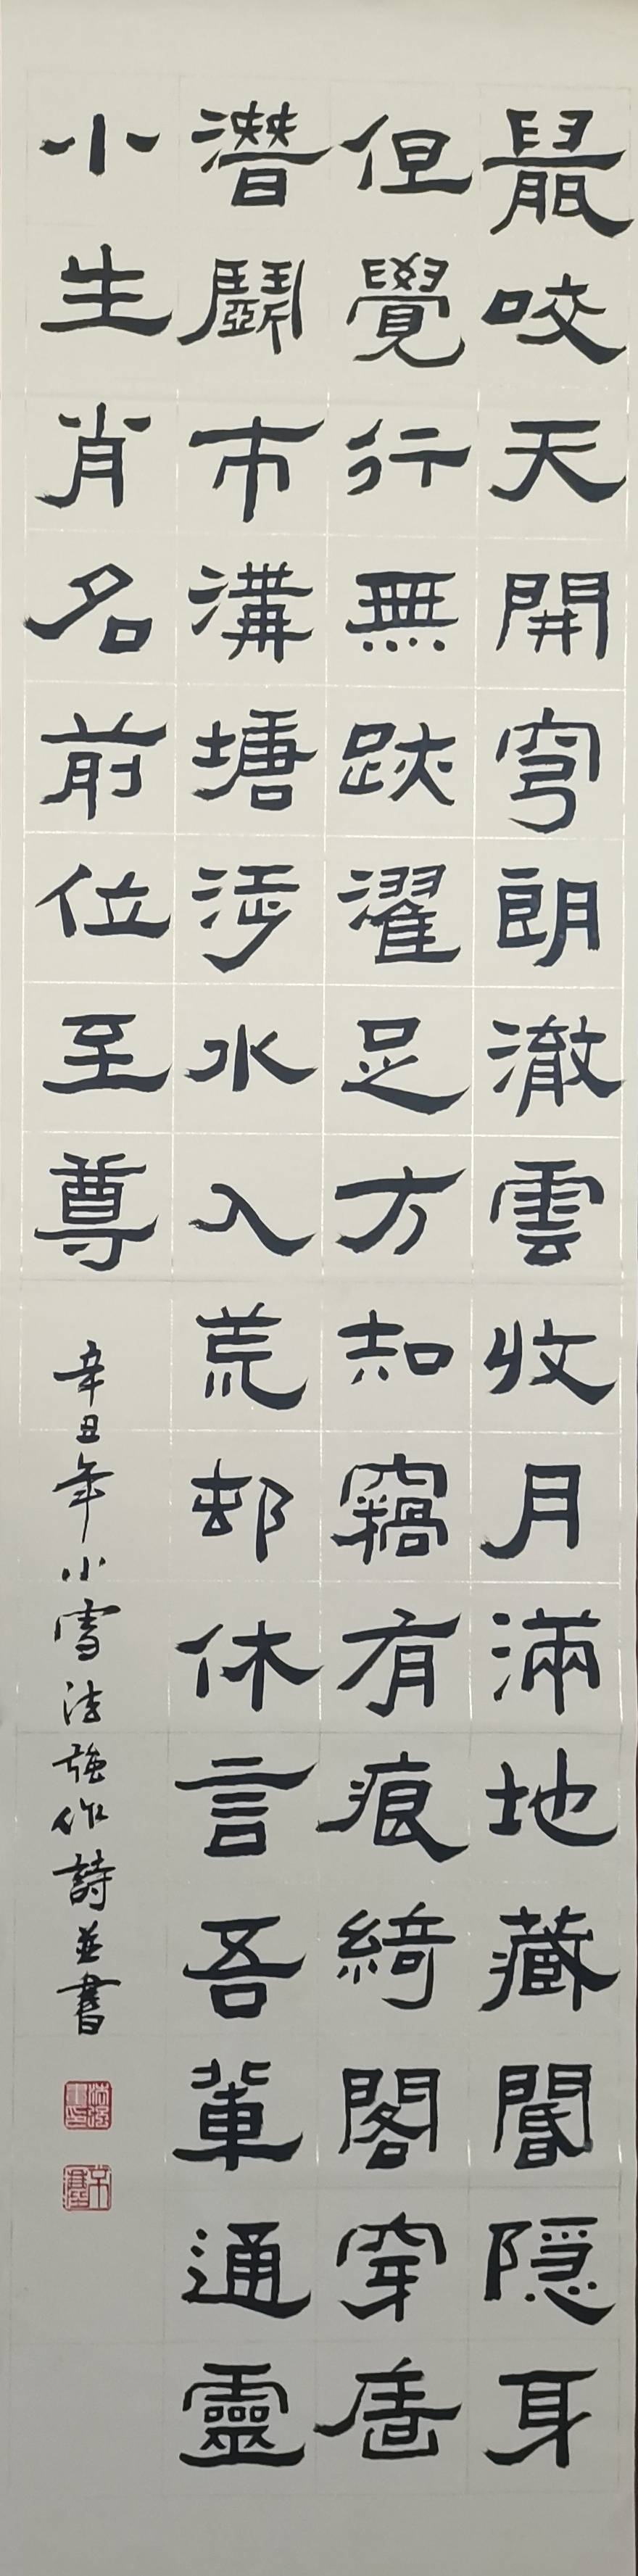 鼠咬天開穹朗澈雲收月滿地藏閽隱身
但覺行無跡濯足方知竊有痕綺閣穿
潛市溝塘涉水入荒邨休言吾輩通靈
小生肖名前位至尊
辛丑年小雪法強作詩並書